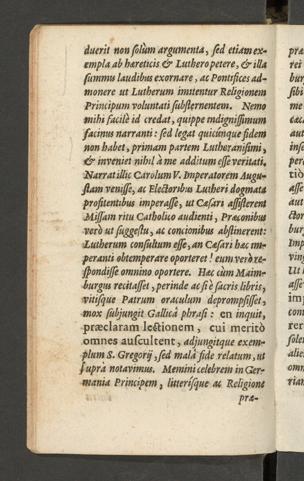 duerit non solùm argumenta, sed etiam ex-
empla ab hæreticis & Luthero petere, & illa
summis laudibus exornare, ac Pontifices ad-
monere ut Lutherum imitentur Religionem
Principum voluntati substernentem. Nemo
mihi facilè id credat, quippe indignissimum
facinus narranti: sed legat quicúnque fidem
non habet, primam partem Lutheranismi,
& inveniet nihil à me additum esse veritati.
Narrat illic Carolum V. Imperatorem Augu-
stam venisse, ac Electoribus Lutheri dogmata
profitentibus imperasse, ut Cæsari assisterent
Missam ritu Catholico audienti, Præconibus
verò ut suggestu, ac concionibus abstinerent:
Lutherum consultum esse, an Cæsari hæc im-
peranti obtemperare oporteret! eum verò re-
spondisse omnino oportere. Hæc cùm Maim-
burgius recitasset, perinde ac si è sacris libris,
vitisque Patrum oraculum deprompsisset,
mox subjungit Gallicâ phrasi: en inquit,
præclaram lectionem, cui meritò
omnes auscultent, adjungitque exem-
plum S. Gregorij, sed malâ fide relatum, ut
supra notavimus. Memini celebrem in Ger-
mania Principem, litterisque ac Religione
præ-